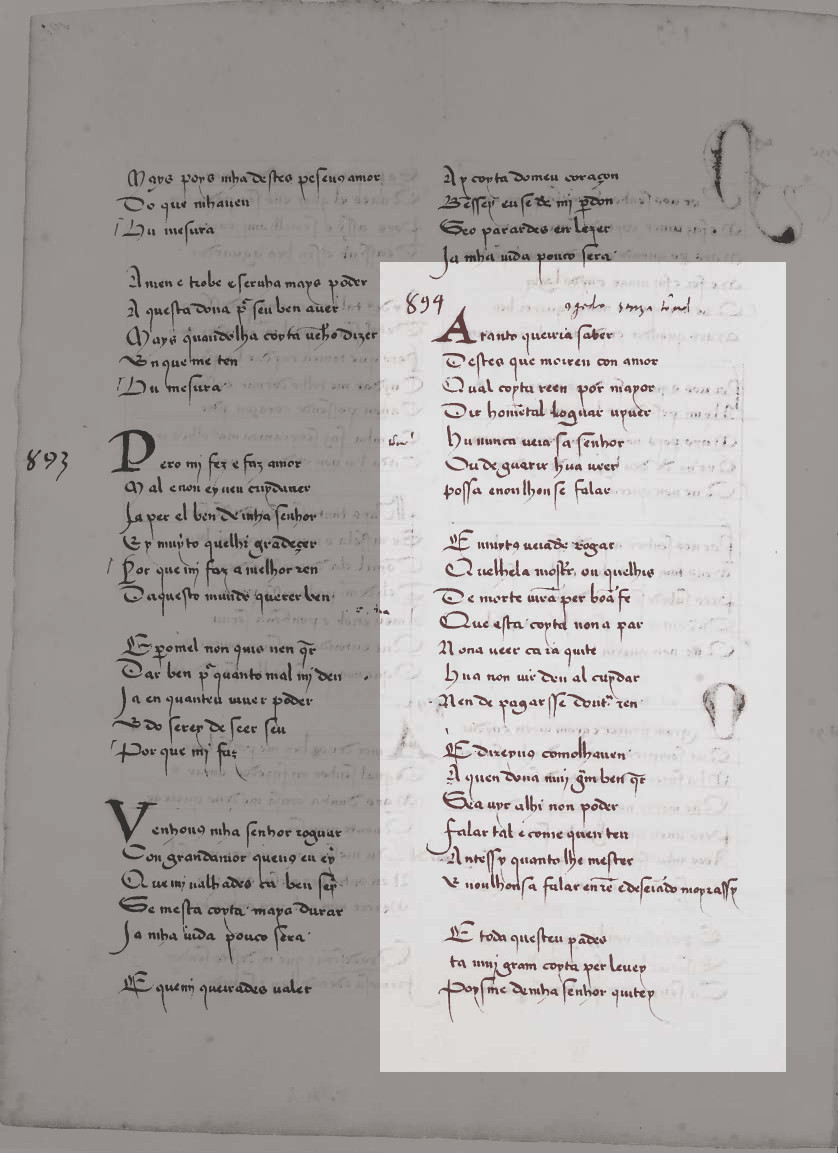 Mays poys mha destes pesseuꝯ amor
Do que mihauen
Du mesura
A men e trobe e seruha mays poder
A questa dona pᵃ seu ben auer
Mays quandolha coyta ueho dizer
En que me ten
Du mesura
893
Pero mi fez e faz amor
Mal e non ey ueu cuydaner
Ja per el ben de mha senhor
Ey muyto quelhi gradeçer
Por que mi faz a melhor ren
Daquesto mundo querer ben
E pomel non quis uen qr̄
Dar ben pᵃ quanto mal mi den
Ja en quanteu uiuer poder
Edo serey de seer seu
Por que mi faz
Venhouꝯ mha senhor roguar
Con grandamor queuꝯ eu ey
Que mi ualhades ca ben sey
Se mesta coyta maya durar
Ja mha uida pouco sera
E quemi queirades ualer
Ay coyta domeu coraçon
Bessey eu se de mi ꝑdon
Seo parardes en lezer
Ja mha uida pouco sera
894
A tanto queiria saber
Destes que moiren con amor
Qual coyta reen por mayor
Dir homētal loguar uyuer
hu nunca ueia sa senhor
Ou de guarir hua ueer
possa enonlhonse falar
E muytꝯ ueiade rogar
Quelhela mostr, ou quelhis
De morte uirā per boā fe
Que esta coyta non a par
Nona ueer ca ia quite
hua non uir den al cuydar
Nen de pagarsse doutᵃ ren
E direyuꝯ comolhauen
A quen dona mui gm̄ ben qr̄
Sea uyr alhi non poder
falar tal e come quen ten
Antessy quanto lhe mester
E nonlhonsa falar enrē e deseiādo moyrassy
E toda questeu pades
ta muj gram coyta per leuey
Poysme demha senhor quitey